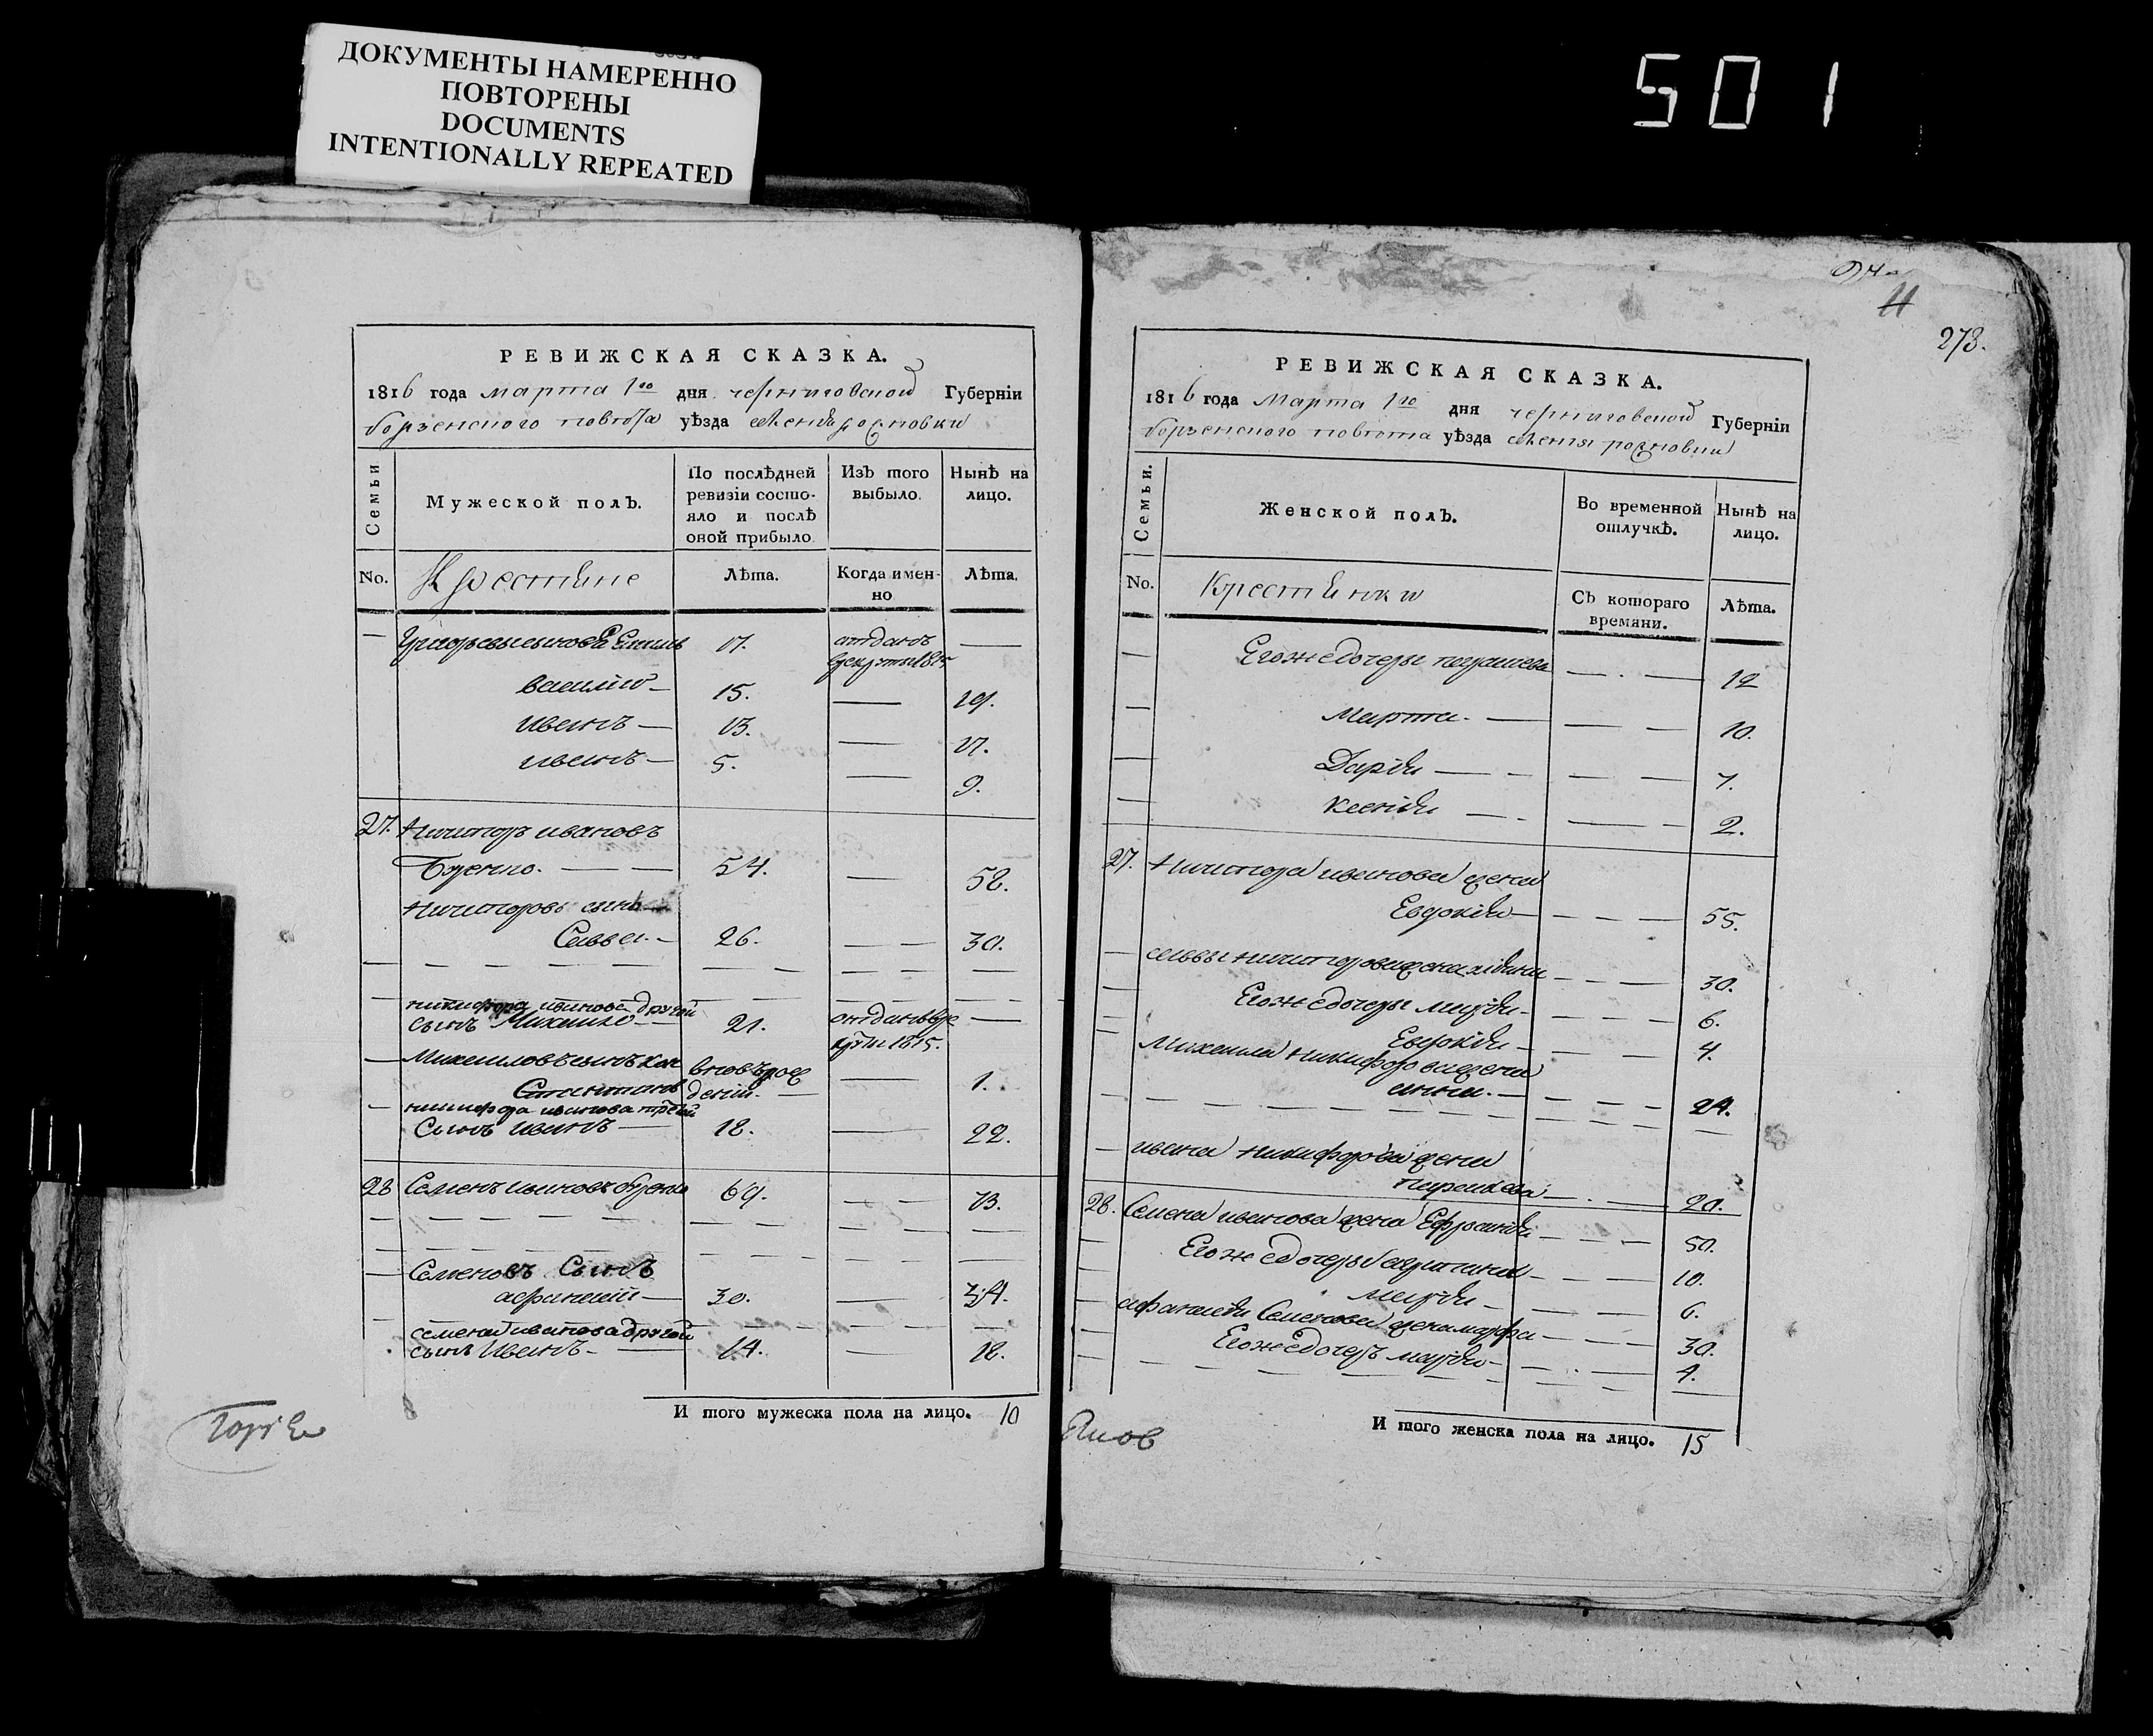 ДОКУМЕНТЫ НАМЕРЕННО
ПОВТОРЕНЫ
DOCUMENTS
INTENTIONALLY REPEATED
501
РЕВИЖСКАЯ СКАЗКА.
1816 года марта 1го дня черниговской Губернїи
борзенского повѣта уѣзда
Семьи
Мужеской полъ.
По послѣдней
ревизїи состо-
яло и послѣ
оной прибыло.
Изъ того
выбыло.
Нынѣ на
лицо.
No.
Крестяне
Лѣта.
Когда имен-
но
Лѣта.
17. отданъ
1815
василий 15. 19.
иванъ 13. 17.
иванъ 5. 9.
27. Ничипоръ ивановъ
54. 58.
Ничипоровъ сынъ
Савва 26. 30.
никифора иванова другой
сынъ Михайло 21. отданъ
1815.
Михайловъ сынъ
вновь рож
денїй. 1.
никифора иванова третїй
сынъ иванъ 18. 22.
28 Семенъ ивановъ 69. 73.
Семеновъ Сынъ
афанасий 30. 34.
семена иванова другой
сынъ Иванъ 14. 18.
И того мужеска пола на лицо. 10
11
273.
РЕВИЖСКАЯ СКАЗКА.
1816 года Марта 1го дня черниговской Губернїи
борзенского повѣта уѣзда
Семьи.
Женской полъ.
Во временной
отлучкѣ.
Нынѣ на
лицо.
No.
Крестянки
Съ котораго
времяни.
Лѣта.
Егоже дочеры 12
Марта 10.
Дарїя 7.
Ксенїя 2.
27. Ничипора иванова жена
Евдокїя 55.
саввы ничипорова жена 30.
Егоже дочеры марїя 6.
Евдокїя 4.
Михаила никифорова жена
анна 24.
ивана никифорова жена
20.
28. Семена иванова жена 50.
Егоже дочеры 10.
марїя 6.
афанасия Семенова жена марфа 30.
Егоже дочеръ марїя 4.
И того женска пола на лицо. 15